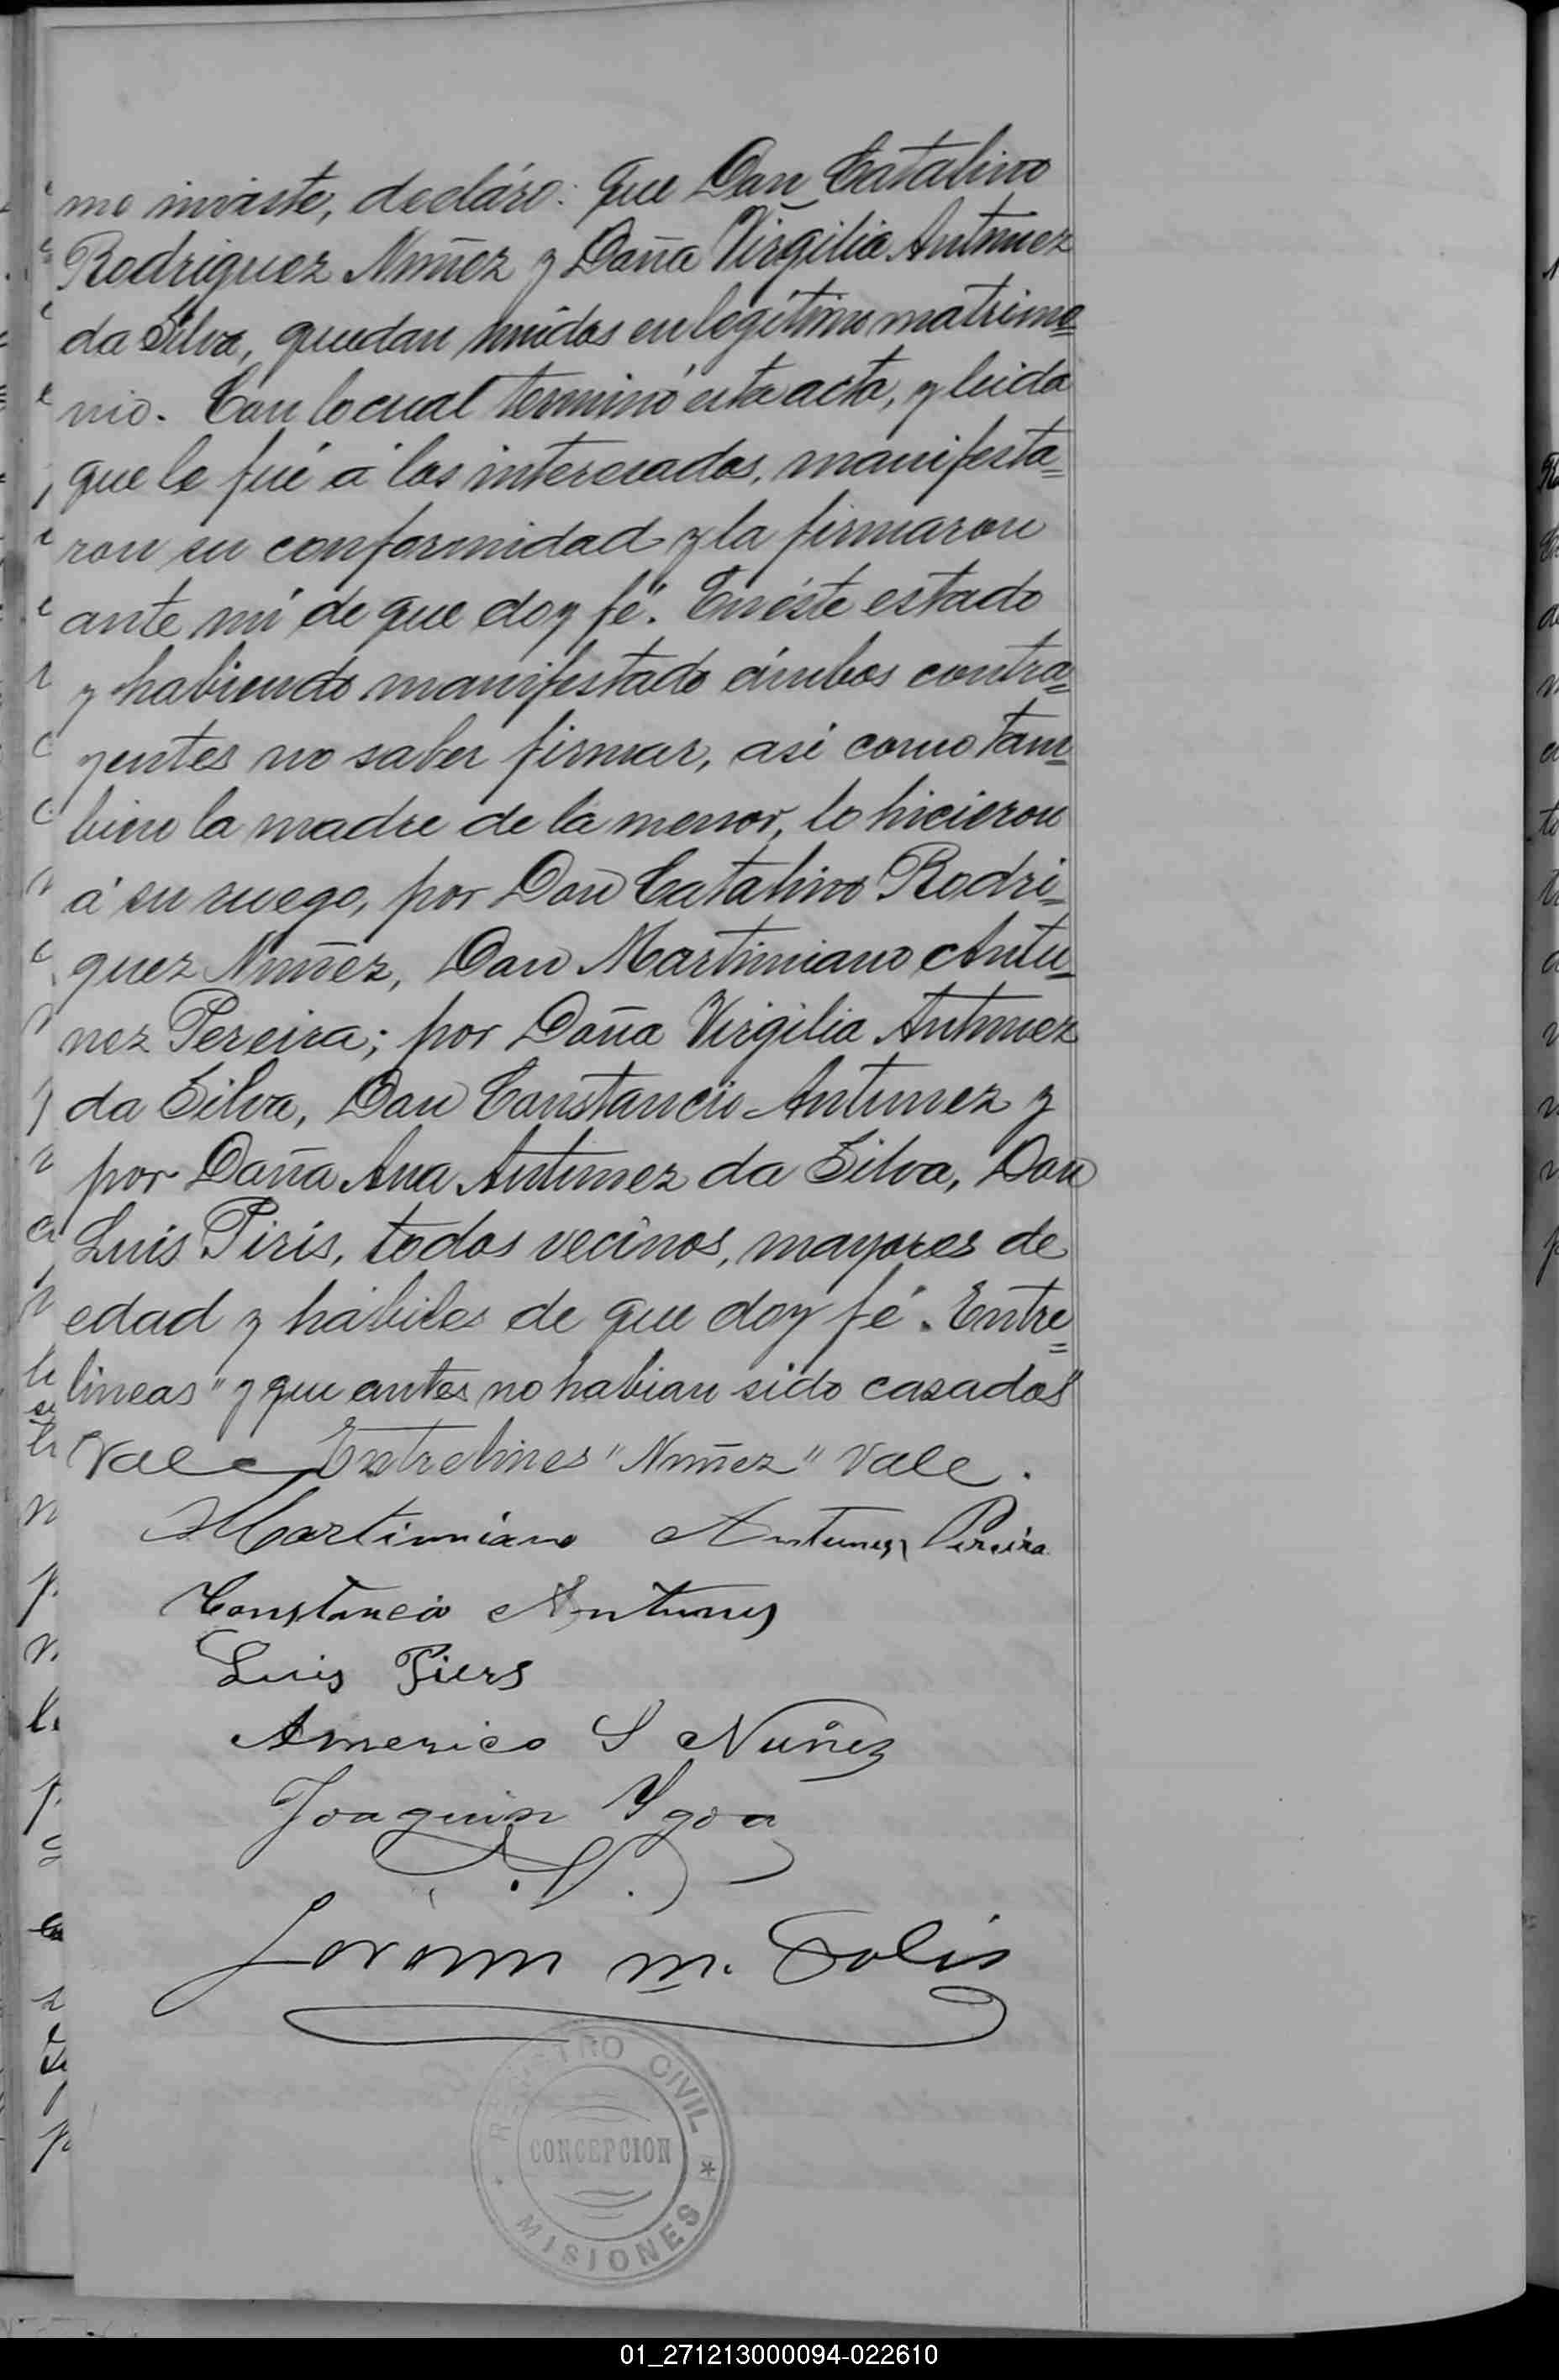 me inviste, decláro: que Don Catalino
Rodriguez Nuñez y Doña Virgilia Antunez
da Silva, quedan unidos en legítimo matrimo=
nio. Con lo cual terminó esta acta, y leida
que le fué á los interesados, manifesta=
ron su conformidad y la firmaron
ante mi de que doy fé. En éste estado
y habiendo manifestado ámbos contra=
yentes no saber firmar, asi como tam=
bien la madre de la menor, lo hicieron
á su ruego, por Don Catalino Rodri=
guez Nuñez, Don Martiniano Antu=
nez Pereira; por Doña Virgilia Antunez
da Silva, Don Constancio Antunez y
por Doña Ana Antunez da Silva, Don
Luis Piris, todos vecinos, mayores de
edad y hábiles de que doy fé. Entre=
lineas "y que antes no habian sido casados"
Vale Entrelines "Nuñez" Vale.
Martiniano Antunez Pereira
Constancio Antunes
Luis Piers
Americo S Nuñez
Joaquin Ygoa
m. Solis
REGISTRO CIVIL
CONCEPCION
MISIONES
01_271213000094-022610